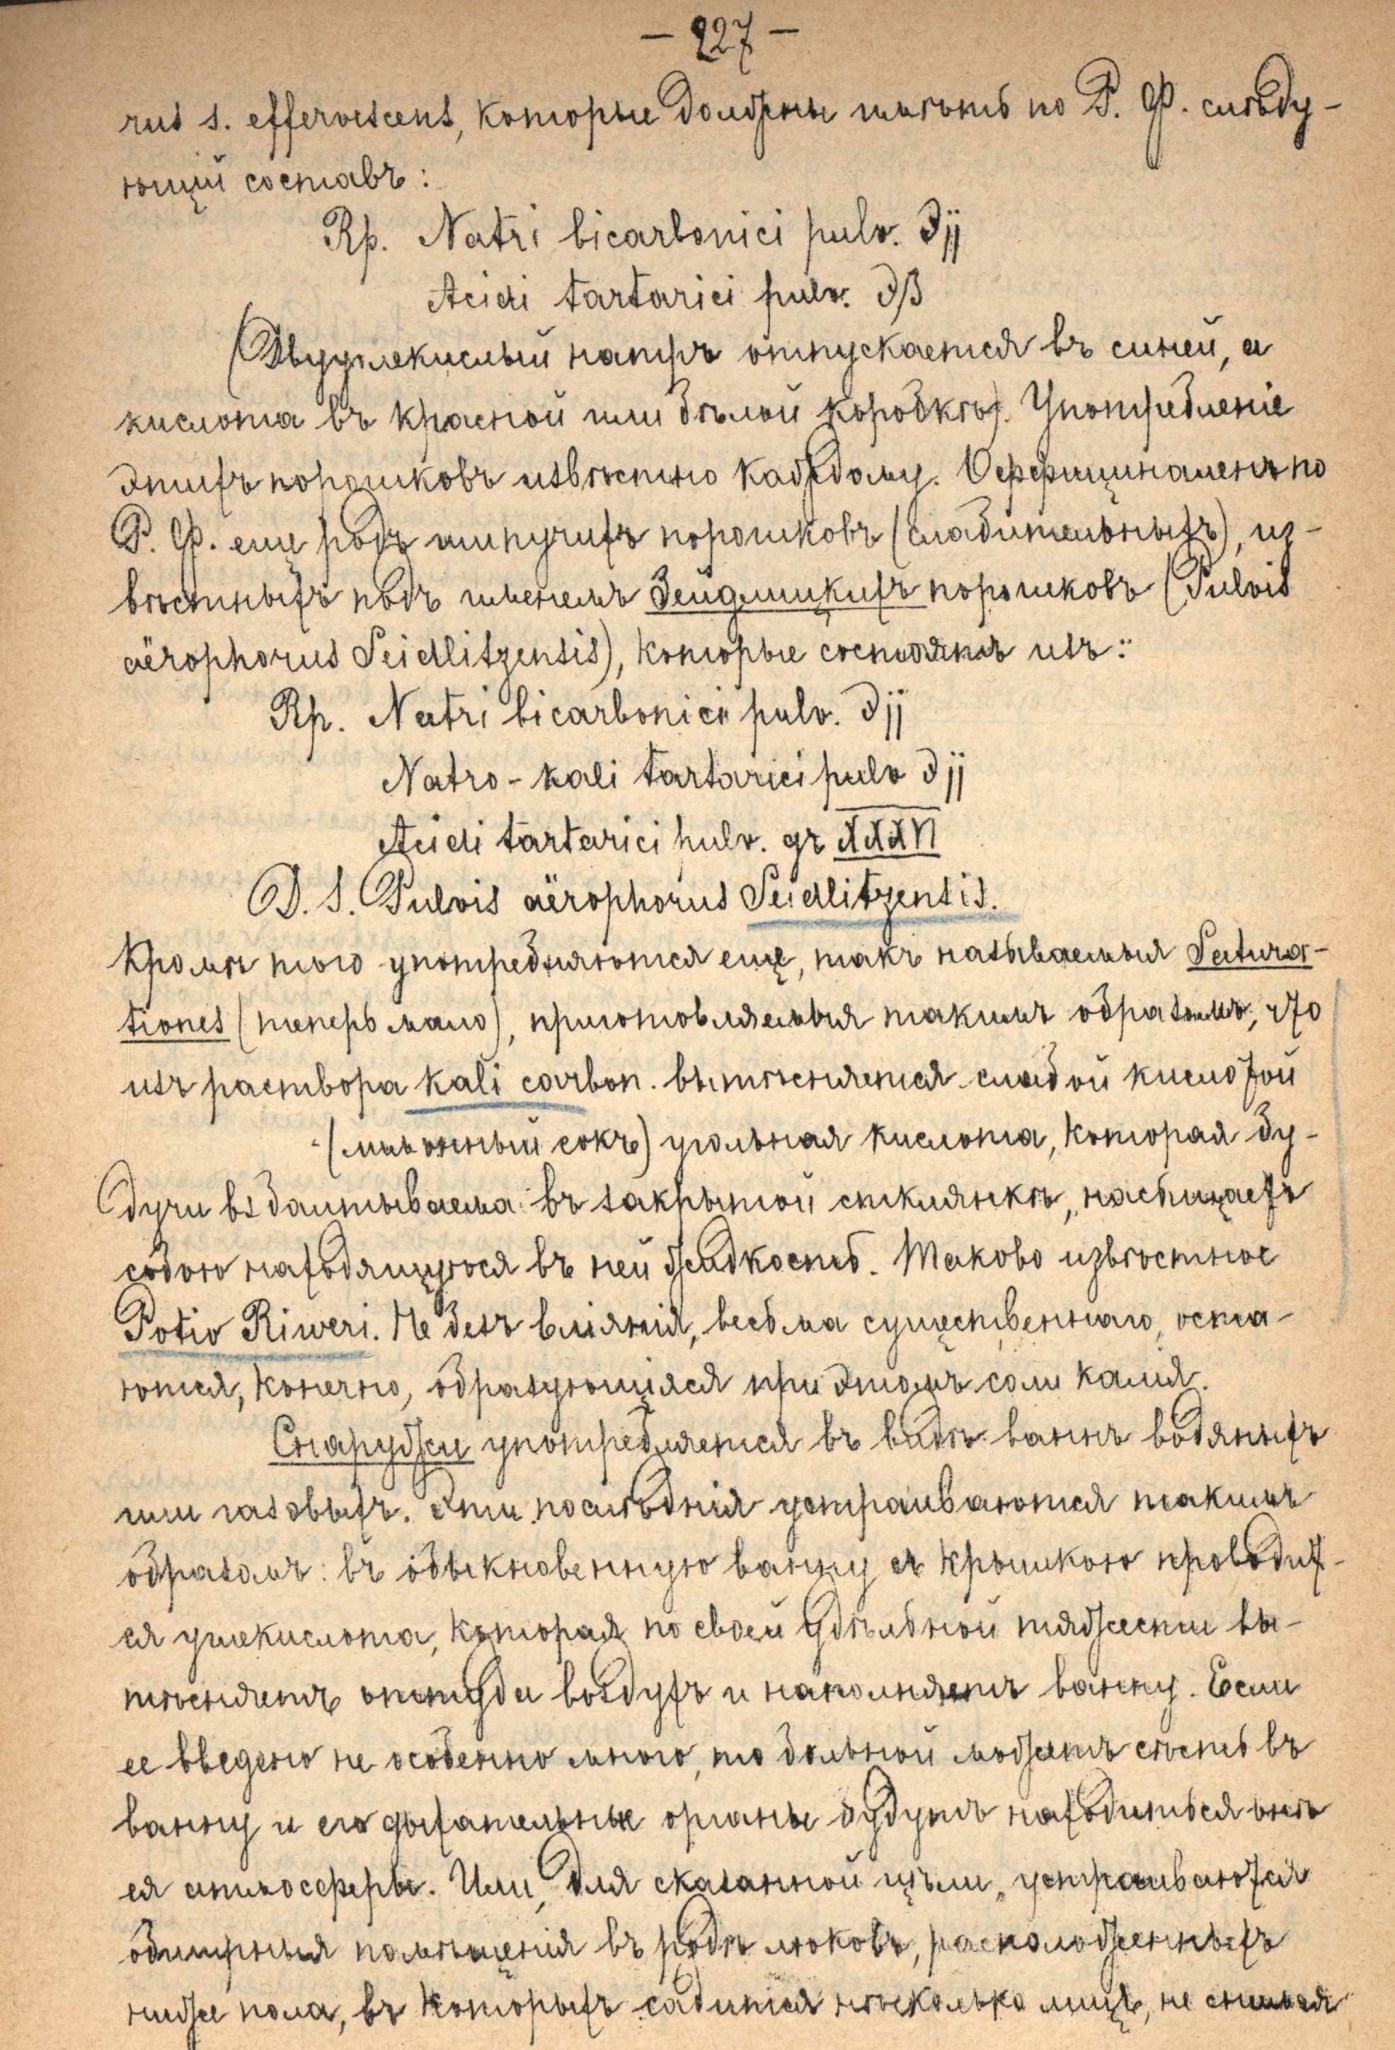 — 227 —
rus s. effervescens, которые должны имѣть по Р. Ф. слѣду-
ющій составъ:
Rp. Natri bicarbonici pulv. ℈jj
Acidi tartarici pulv. ℈β
(Двууглекислый натръ отпускается въ синей, а
кислота въ красной или бѣлой коробкѣ). Употребленіе
этихъ порошковъ извѣстно каждому. Оффициналенъ по
Р. Ф. еще родъ шипучихъ порошковъ (слабительныхъ), из-
вѣстныхъ подъ именемъ Зейдлицкихъ порошковъ (Pulvis
aërophorus Seidlitzensis), которые состоятъ изъ:
Rp. Natri bicarbonici pulv. ℈jj
Natro-kali tartarici pulv ℈jj
Acidi tartarici pulv. gr XXXV
D. S. Pulvis aërophorus Seidlitzensis.
Кромѣ того употребляются еще, такъ называемыя Satura-
tiones (теперь мало), приготовляемыя такимъ образомъ, что
изъ раствора kali carbon. вытѣсняется слабой кислотой
(лимонный сокъ) угольная кислота, которая бу-
дучи взбалтываема въ закрытой стклянкѣ, насыщаетъ
собою находящуюся въ ней жидкость. Таково извѣстное
Potio Riweri. Не безъ вліянія, весьма существеннаго, оста-
ются, конечно, образующіяся при этомъ соли калія.
Снаружи употребляется въ видѣ ваннъ водяныхъ
или газовыхъ. Эти послѣднія устраиваются такимъ
образомъ: въ обыкновенную ванну съ крышкою проводит-
ся углекислота, которая по своей удѣльной тяжести вы-
тѣсняетъ оттуда воздухъ и наполняетъ ванну. Если
ее введено не особенно много, то больной можетъ сѣсть въ
ванну и его дыхательные органы будутъ находиться внѣ
ея атмосферы. Или, для сказанной цѣли, устраиваются
обширныя помѣщенія въ родѣ люковъ, расположенныхъ
ниже пола, въ которыхъ садится нѣсколько лицъ, не снимая